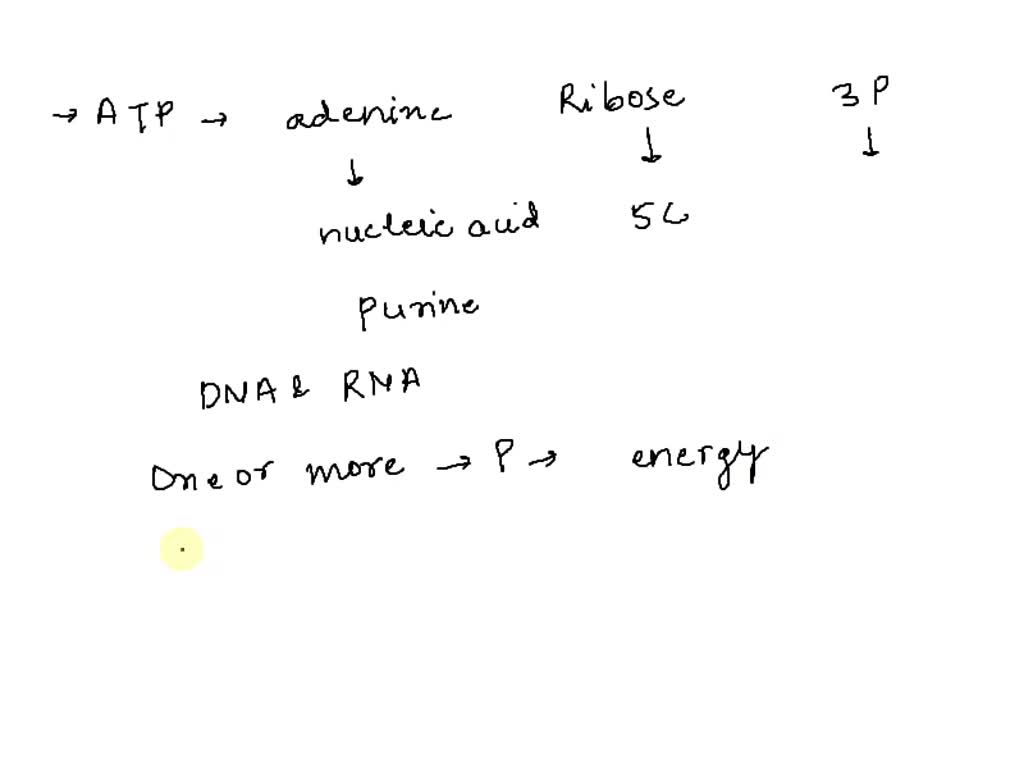 → ATP → adenine Ribose 3P
↓ ↓ ↓
nucleic acid 5C
Purine
DNA & RNA
One or more → P → energy